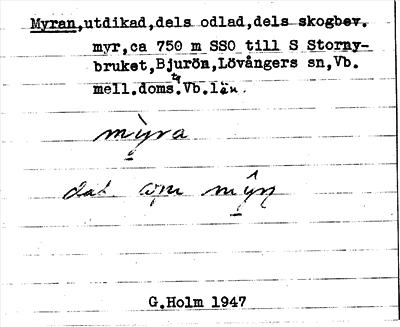 Myran,utdikad,dels odlad,dels skogbev.
myr,ca 750 m SSO till S Storny-
bruket,Bjurön,Lövångers sn,Vb.
mell.doms.Vb.län.
mỳra
dat mŷn
G.Holm 1947